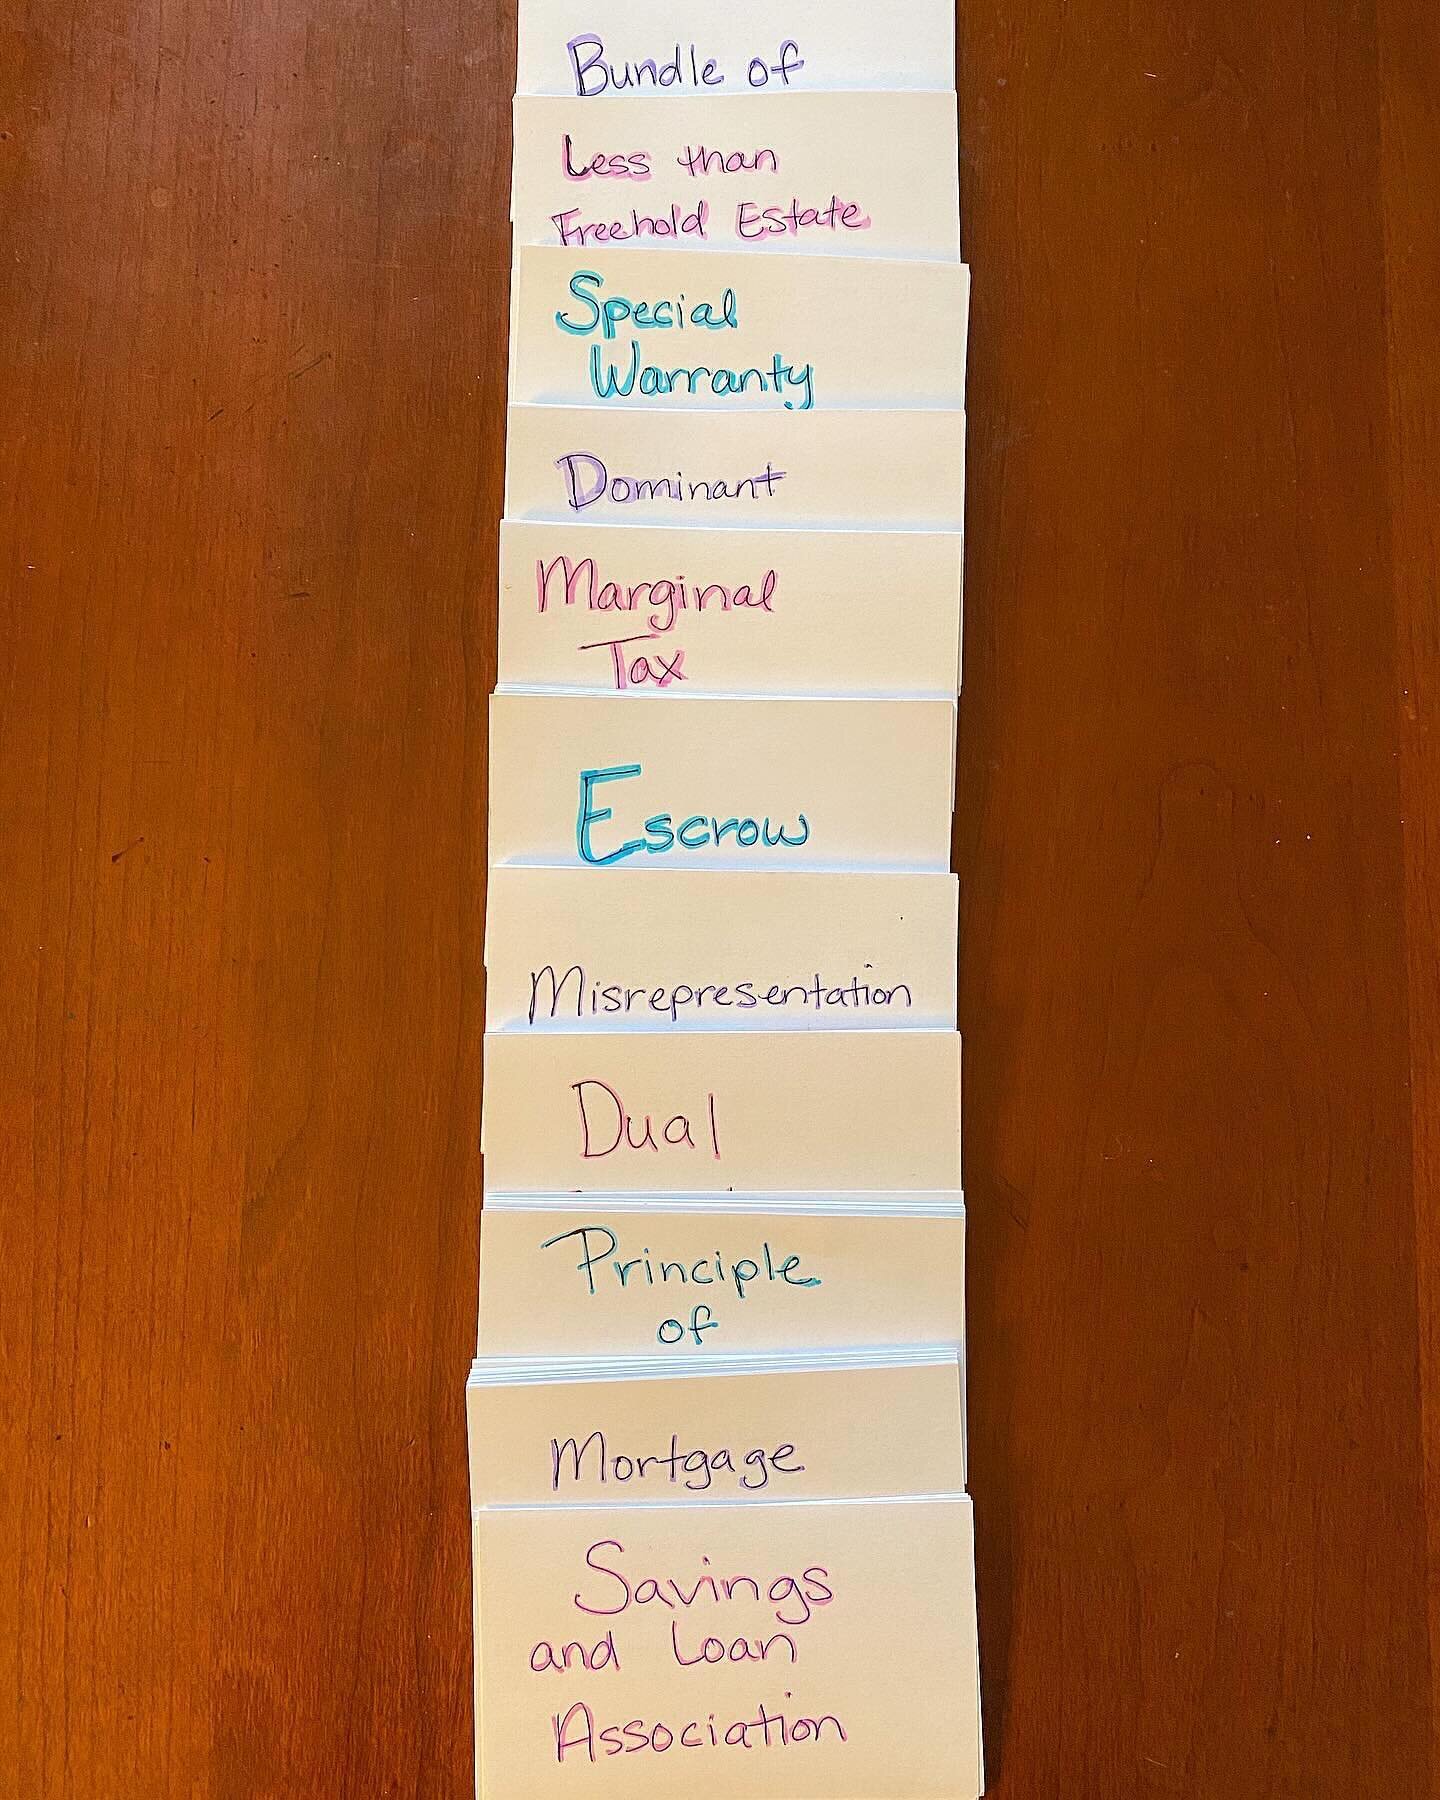 Bundle of
Less than
Freehold Estate
Special
Warranty
Dominant
Marginal
Tax
Escrow
Misrepresentation
Dual
Principle
of
Mortgage
Savings
and Loan
Association